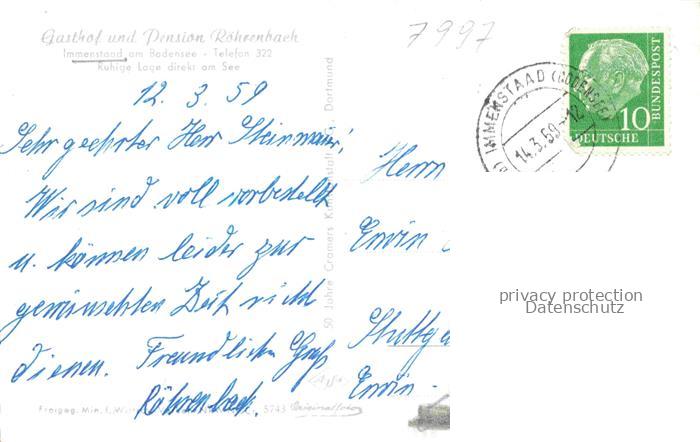 Gasthof und Pension Röhrenbach
Immenstaad am Bodensee - Telefon 322
Ruhige Lage direkt am See
7997
12. 3. 59
Sehr geehrter Herr Steinmaier!
Wir sind voll vorbestellt
u. können leider zur
gewünschten Zeit nicht
dienen. Freundlichen Gruß
Röhrenbach.
Freigeg. Min. f. 5743 Originalfoto
50 Jahre Cramers Kunstanstalt Dortmund
Herrn
Erwin
Stuttga
Erwin -
IMMENSTAAD (BODENSEE)
14.3.59-12
10
DEUTSCHE
BUNDESPOST
privacy protection
Datenschutz